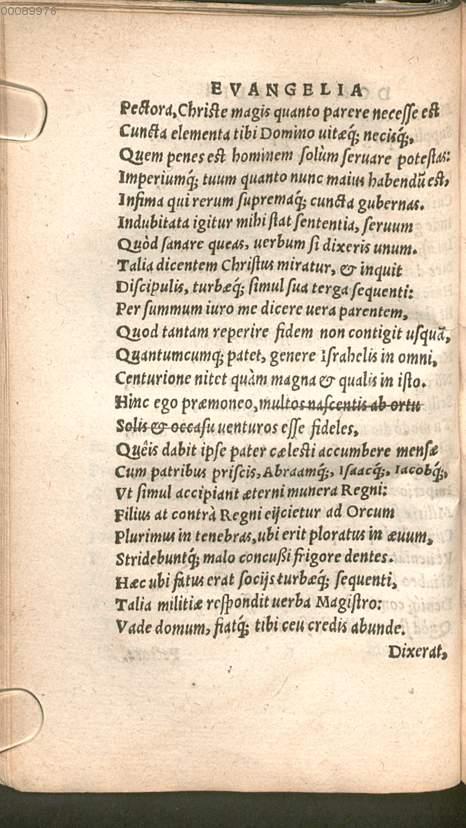 00089976
EVANGELIA
Pectora, Christe magis quanto parere necesse est
Cuncta elementa tibi Domino uitæq́; necisq́;,
Quem penes est hominem solùm seruare potestas:
Imperiumq́; tuum quanto nunc maius habendũ est,
Infima qui rerum supremaq́; cuncta gubernas.
Indubitata igitur mihi stat sententia, seruum
Quòd sanare queas, uerbum si dixeris unum.
Talia dicentem Christus miratur, & inquit
Discipulis, turbæq́; simul sua terga sequenti:
Per summum iuro me dicere uera parentem,
Quod tantam reperire fidem non contigit usquã,
Quantumcumq; patet, genere Israhelis in omni,
Centurione nitet quàm magna & qualis in isto.
Hinc ego præmoneo, multos nascentis ab ortu
Solis & occasu uenturos esse fideles,
Quêis dabit ipse pater cælesti accumbere mensæ
Cum patribus priscis, Abraamq́;, Isaacq́;, Iacobq́;,
Vt simul accipiant æterni munera Regni:
Filius at contrà Regni eijcietur ad Orcum
Plurimus in tenebras, ubi erit ploratus in æuum,
Stridebuntq́; malo concußi frigore dentes.
Hæc ubi fatus erat socijs turbæq́; sequenti,
Talia militiæ respondit uerba Magistro:
Vade domum, fiatq́; tibi ceu credis abunde.
Dixerat,